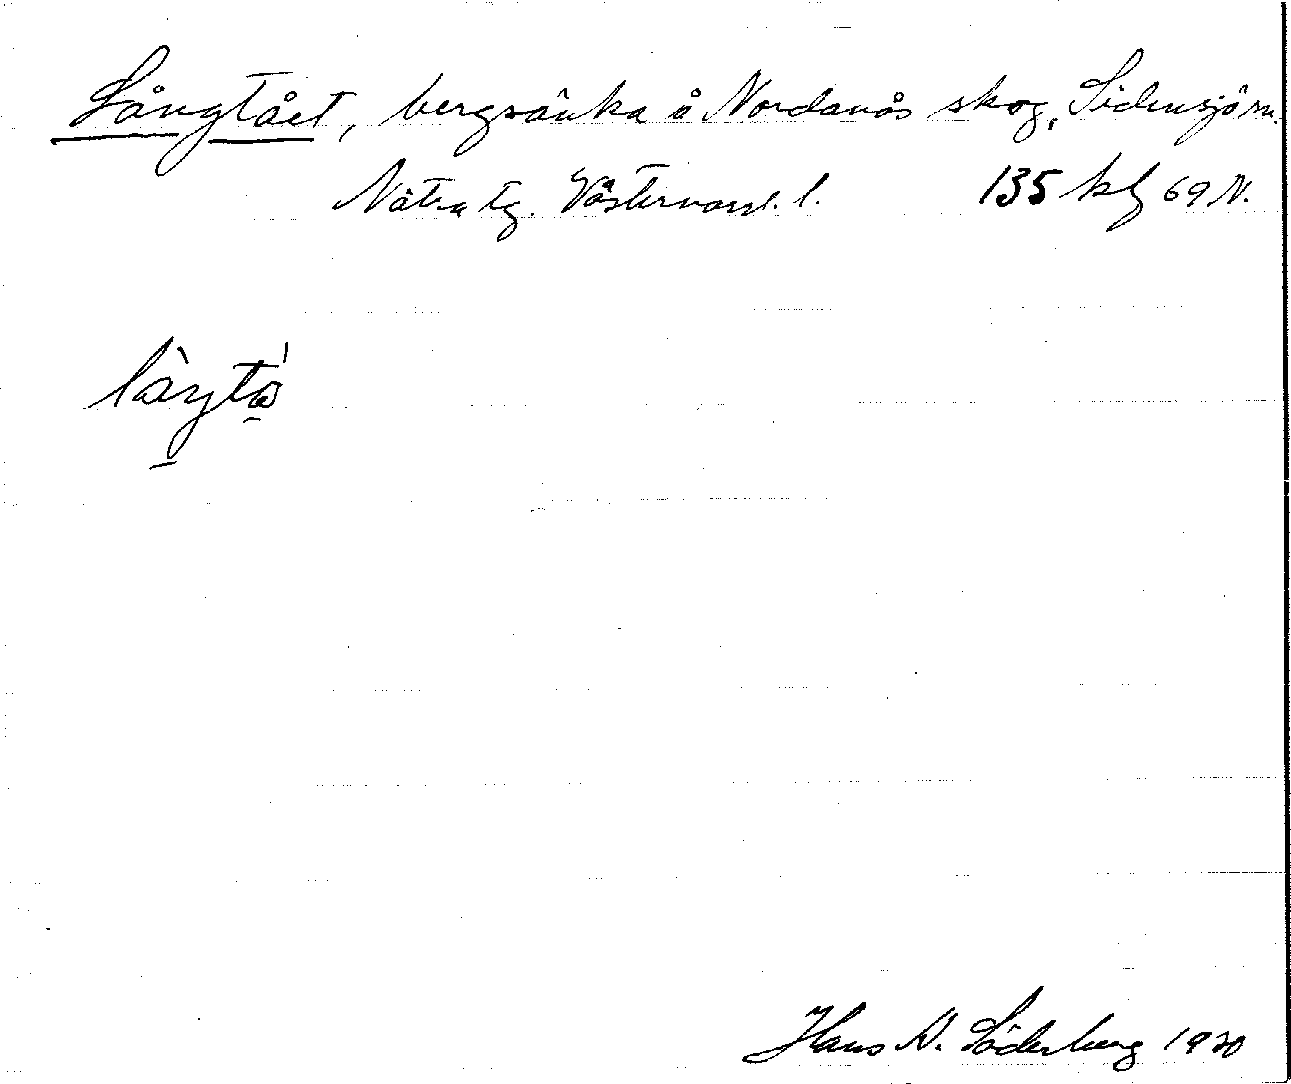 Långtået, bergsänka å Nordanås skog, Sidensjö sn.
Nätra tg. Västernorrl. l. 135 kb 69 N.
Hans N. Söderberg 1930